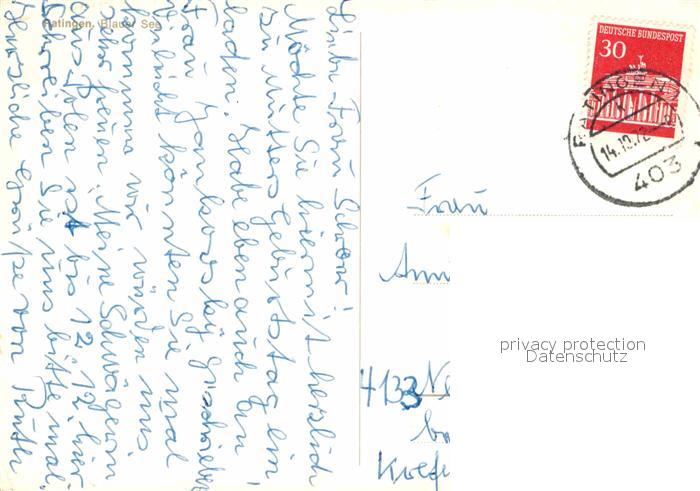 Ratingen, Blauer See
Liebe Frau Schwar!
Möchte Sie hiermit herzlich
zu Mutters Geburtstag ein
laden. Habe eben auch an
Frau geschrieben
vielleicht könnten Sie mal
kommen wir würden uns
sehr freuen. Meine Schwägerin
aus Polen ist bis 12.12. hier
Schreiben Sie uns bitte mal.
Herzliche Grüße von Ruth
DEUTSCHE BUNDESPOST
30
RATINGEN 1
14.10.72
403
Frau
Ann
4133 Ne
privacy protection
Datenschutz